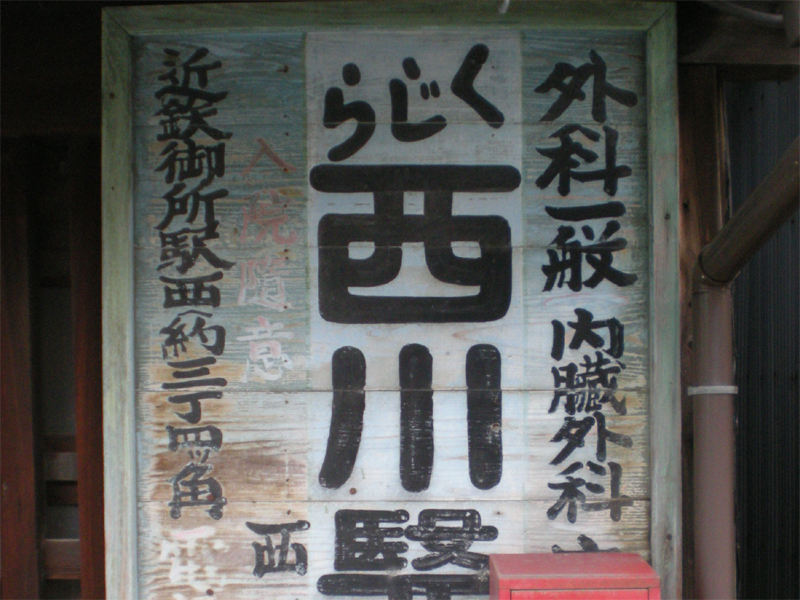 外科一般 内臓外科
くじら
西川醫
入院随意
西
近鉄御所駅西へ約三丁四ッ角
電